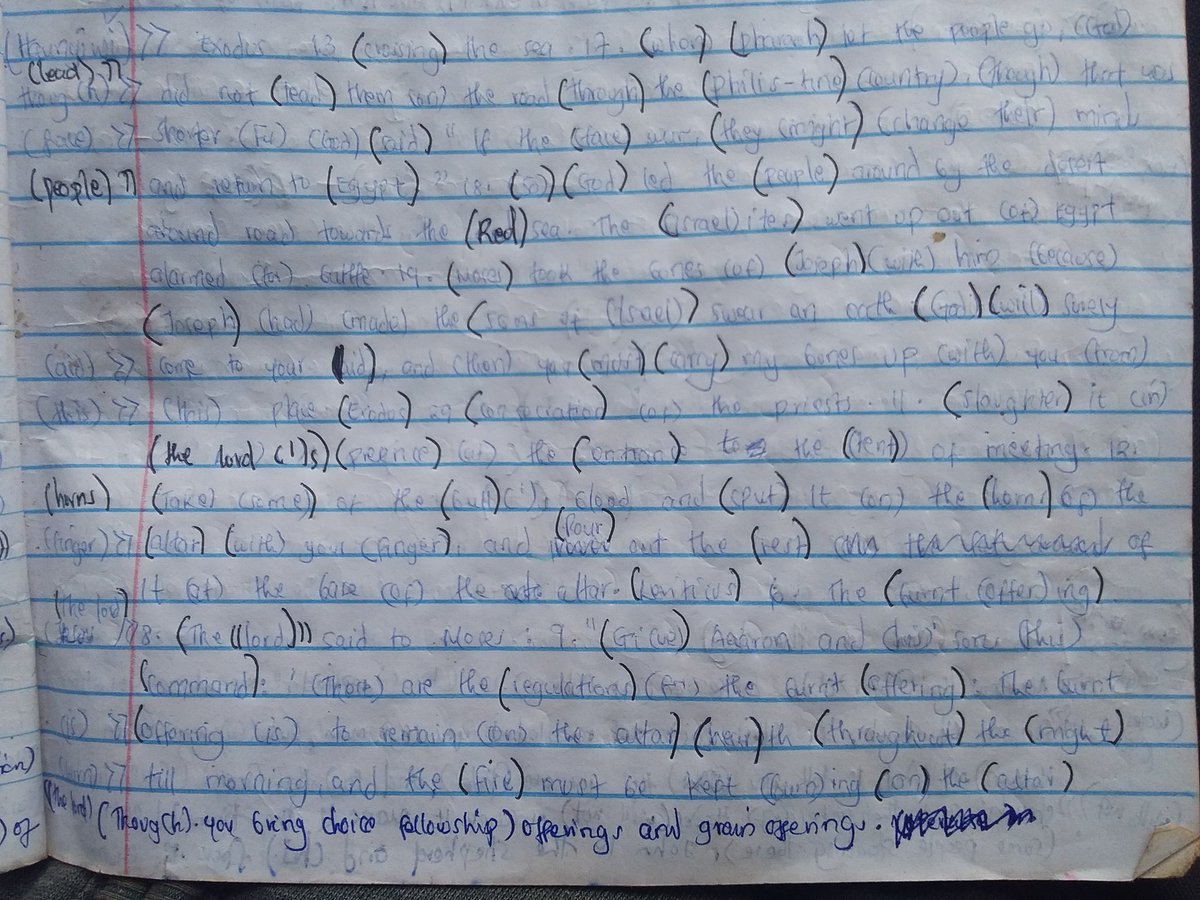 >> Exodus 13 (crossing) the sea. 17. (when) (pharaoh) let the people go, (God)
(lead) >>
thoug(h) >> did not (lead) them (on) the road (through) the (philis-tine) (country), (though) that was
(face) >> shorter (For) (God) (said) " If the (face) war, (they (might) (change their) mind
(people) >> and return to (Egypt) " 18. (so) (God) led the (people) around by the desert
around road towards the (Red) sea. The (Israel)ites) went up out (of) Egypt
alarmed (for) battle. 19. (Moses) took the bones (of) (Joseph) (with) him (because)
(Joseph) (had) (made) the (sons of (Israel)) swear an oath (God) (will) surely
(aid) >> come to your (aid), and (then) you (must) (carry) my bones up (with) you (from)
(this) >> (this) place (Exodus) 29 (consecration) (of) the priests. 11. (slaughter) it (in)
(the lord) (')s) (preence) (at) the (entran) to the (tent) of meeting. 12.
(horns) (Take) (some) of the (bull) (')s blood and (put) it (on) the (horns) of the
(finger) >> (altar) (with) your (finger), and (Pour) out the (rest) of
it (at) the base (of) the altar. (Leviticus) 6. The (burnt (offer)ing)
(The lord) >> 8. (The ((lord))) said to Moses: 9. "(Gi(ve) (Aaaron and (his) sons (this)
(command): ' (These) are the (regulations) (for) the burnt (offering): The burnt
(is) >> (offering (is) to remain (on) the altar) (hear)th (throughout) the (night)
(burn) >> till morning, and the (fire) must be kept (burn)ing (on) the (altar)
(The lord) (Thoug(h). you bring choice fellowship) offerings and grain offerings.